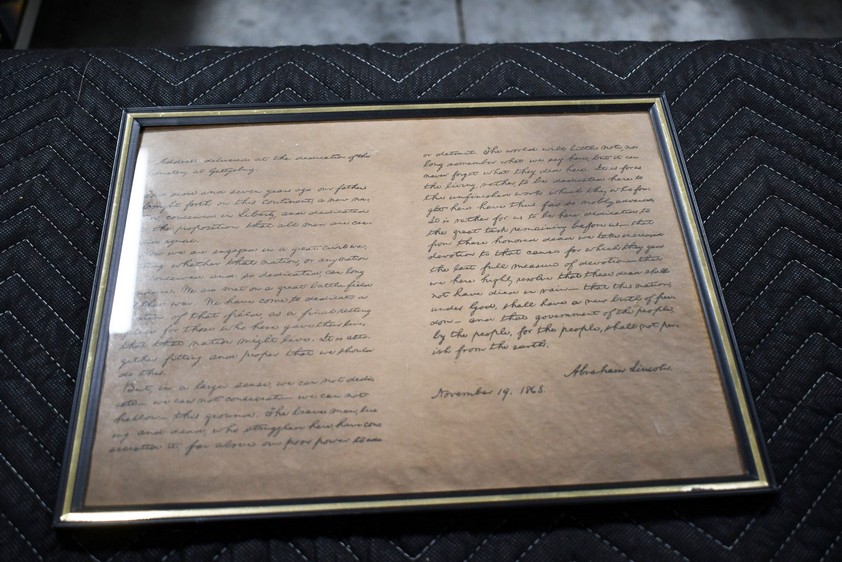 Address delivered at the dedication of the
at Gettysburg.
score and seven years ago our fathers
forth on this continent, a new na-
conceived in liberty, and dedicated
the proposition that all men are cre-
equal.
we are engaged in a great civil war,
whether that nation, or any nation
and so dedicated, can long
We are met on a great battle-field
war. We have come to dedicate a
of that field, as a final resting
for those who here gave their lives,
that that nation might live. It is alto-
gether fitting and proper that we should
do this.
But, in a larger sense, we can not dedi-
cate— we can not consecrate— we can not
hallow— this ground. The brave men, liv-
ing and dead, who struggled here, have con-
secrated it, far above our poor power to add
or detract. The world will little note, nor
long remember what we say here, but it can
never forget what they did here. It is for us
the living, rather, to be dedicated here to
the unfinished work which they who fou-
ght here have thus far so nobly advanced.
It is rather for us to be here dedicated to
the great task remaining before us— that
from these honored dead we take increased
devotion to that cause for which they gave
the last full measure of devotion— that
we here highly resolve that these dead shall
not have died in vain— that this nation,
under God, shall have a new birth of free-
dom— and that government of the people,
by the people, for the people, shall not per-
ish from the earth.
Abraham Lincoln.
November 19, 1863.